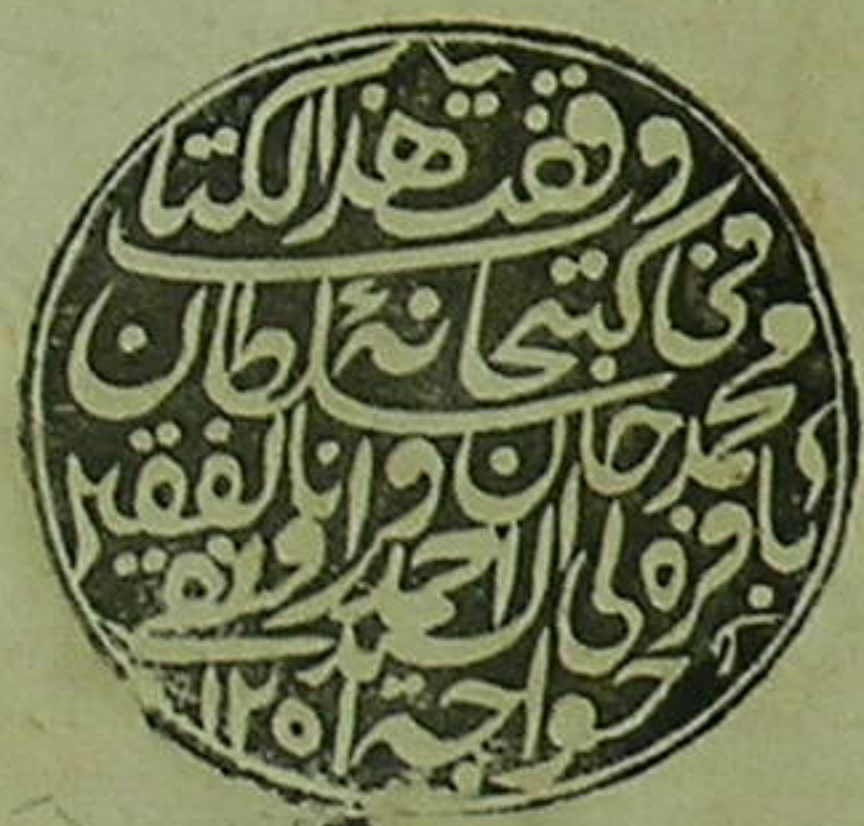 وقفت هذا الكتاب
فى كتبخانهٔ سلطان
محمد خان وانا الفقير
باقره لى السيد احمد
خواجه ١٢٥١